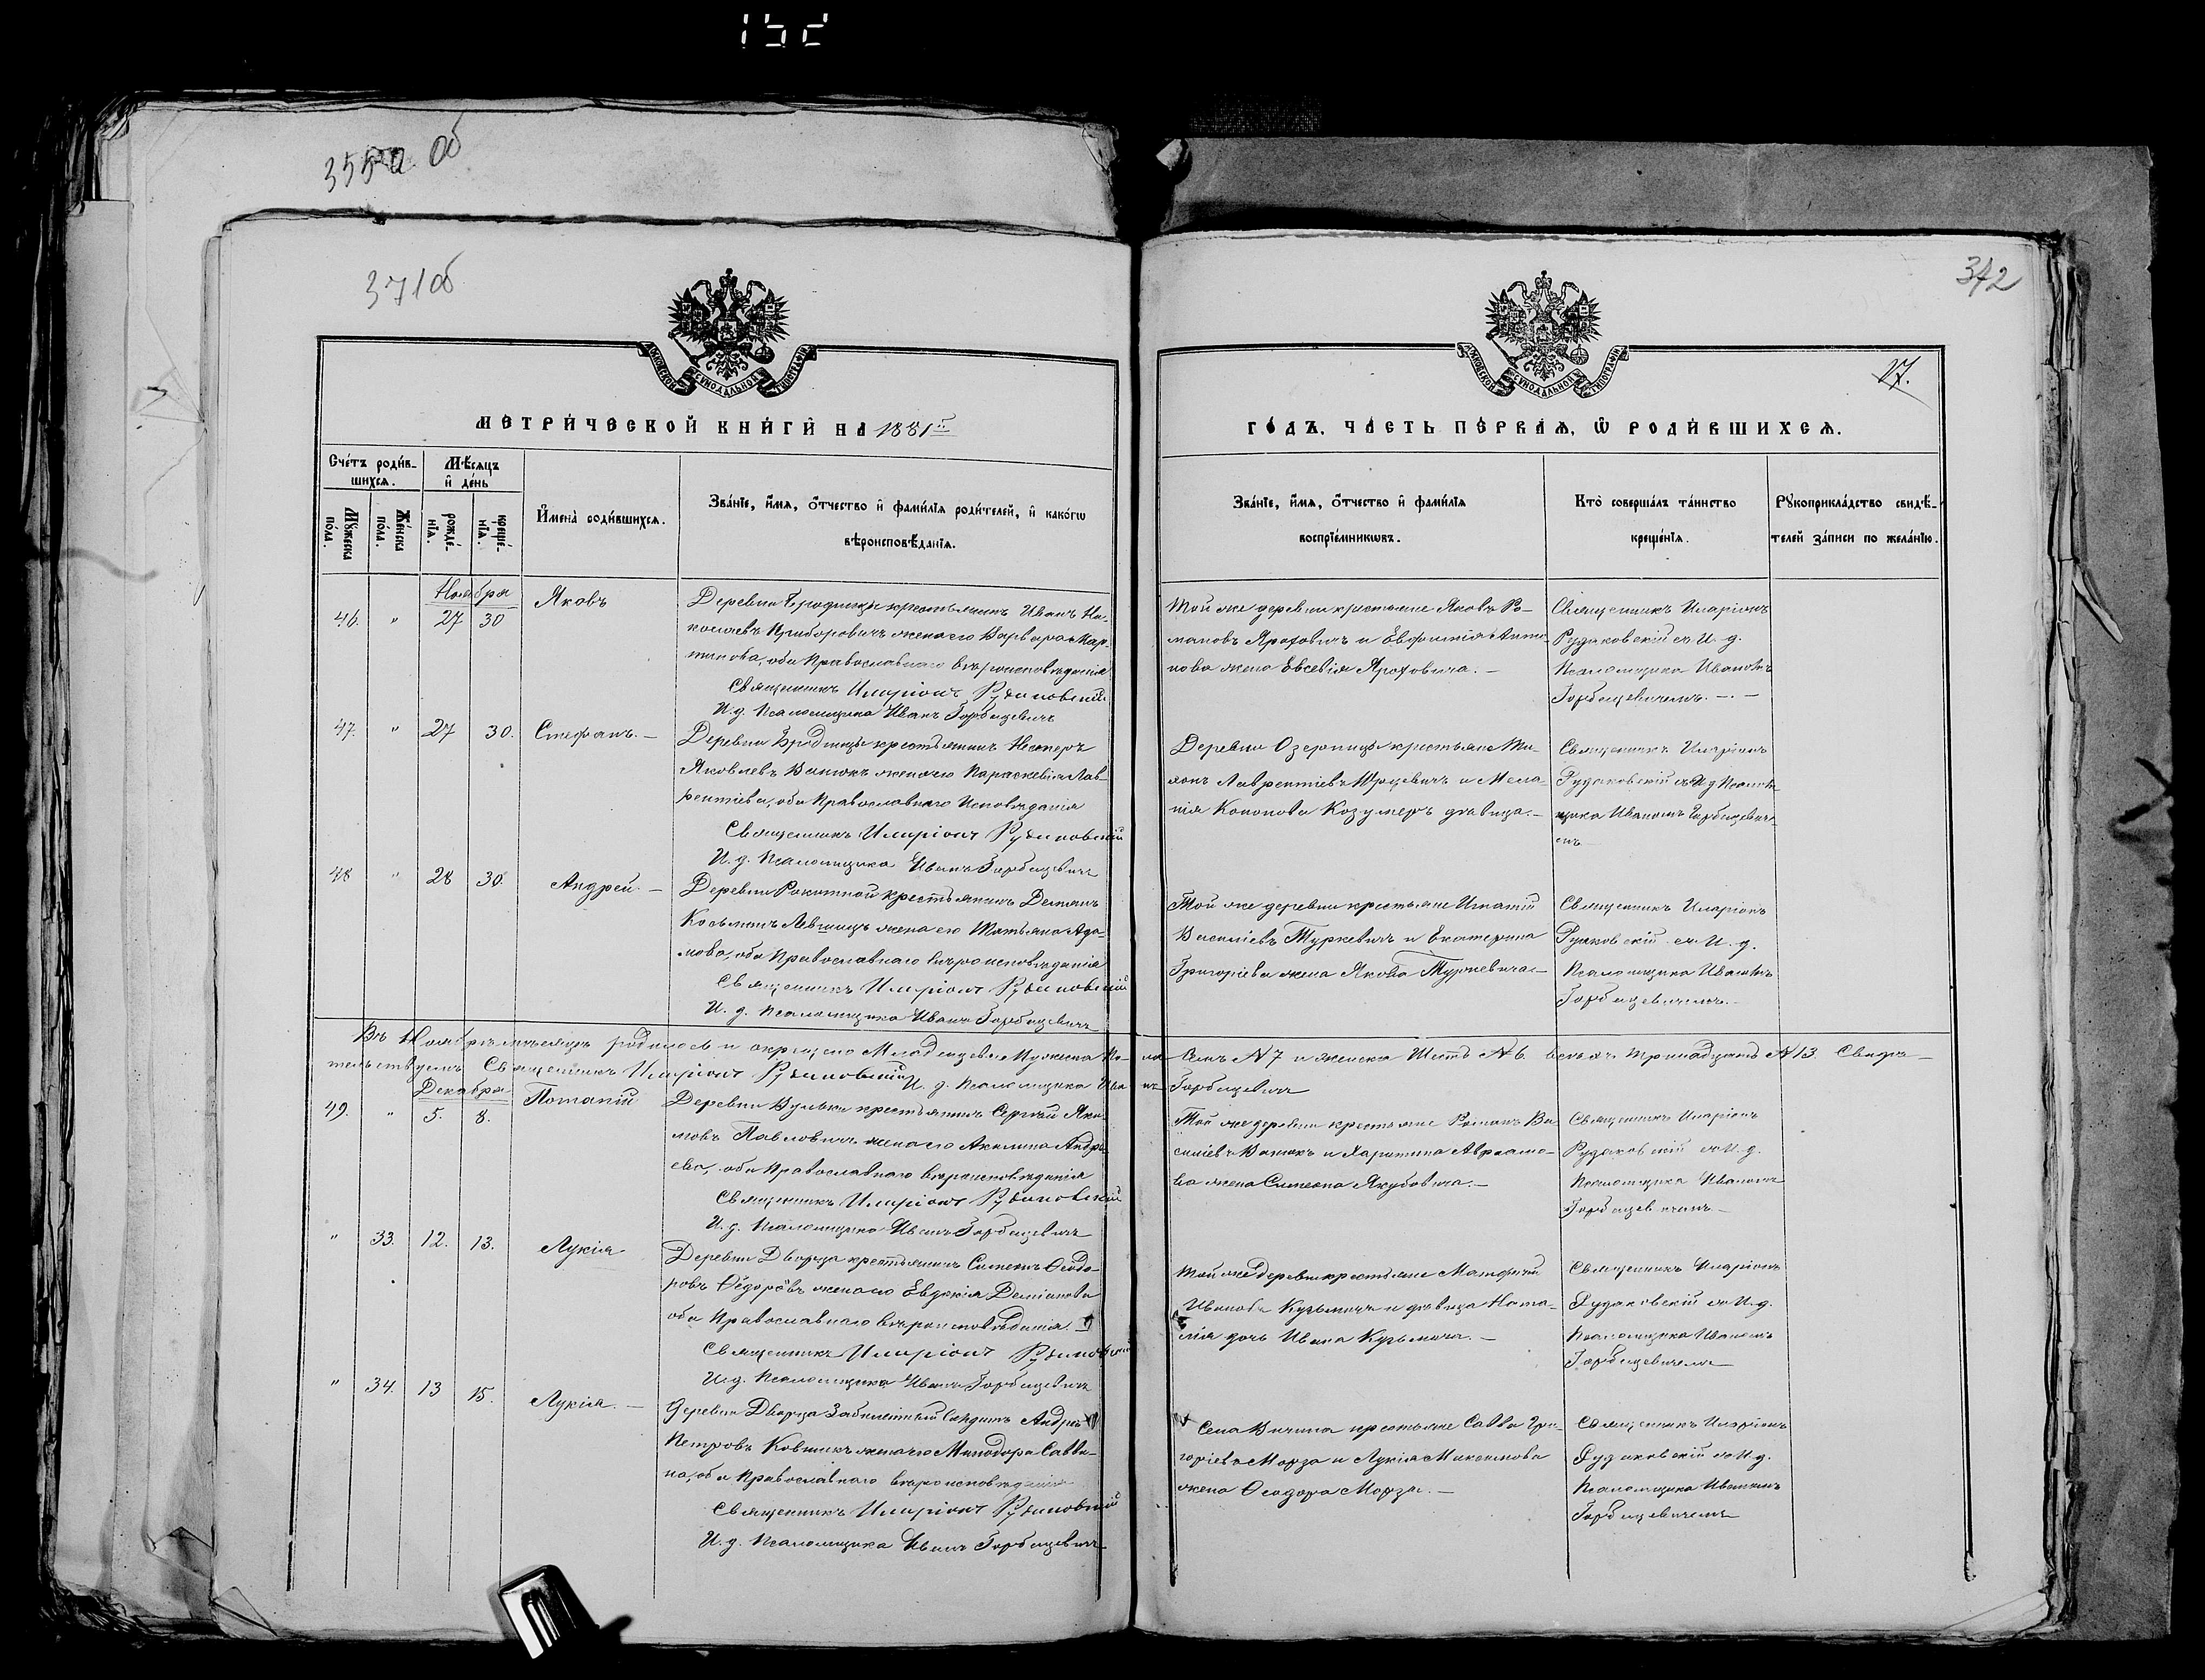 152
355 об
371 об
372
17.
МОСКОВСКОЙ СУНОДАЛЬНОЙ ТИПОГРАФІИ
МОСКОВСКОЙ СУНОДАЛЬНОЙ ТИПОГРАФІИ
МЕТРИ́ЧЕСКОЙ КНИ́ГИ НА 1881й
ГО́ДЪ, ЧА́СТЬ ПЕ́РВАЯ, Ѡ РОДИ́ВШИХСЯ.
Сче́тъ роди́в-
шихся.
Му́жеска по́ла.
Же́нска по́ла.
Мѣ́сяцъ и де́нь
рожде́нія.
креще́нія.
Имена̀ роди́вшихся.
Зва́ніе, и́мя, о́тчество и фами́лія роди́телей, и како́гѡ
вѣроисповѣ́данія.
Зва́ніе, и́мя, о́тчество и фами́лія
воспріе́мникѡвъ.
Кто̀ соверша́лъ та́инство
креще́нія.
Рꙋкоприкла́дство свидѣ́-
телей за́писи по жела́нію.
Ноября
46. " 27 30 Яковъ
Деревни Бродницы крестьянинъ Иванъ Ни-
колаевъ Приборовичъ жена его Варвара Мар-
тинова, оба Православнаго вѣроисповѣданія
Священникъ Иларіонъ Рудаковскій
И. д. Псаломщика Иванъ Горбацевичъ
Той же деревни крестьяне Яковъ Ро-
мановъ Ярохович и Евфимія Анто-
нова жена Евсевія Яроховича. —
Священникъ Иларіонъ
Рудаковскій съ И. д.
Псаломщика Иваномъ
Горбацевичемъ. — . —
47. " 27 30. Стефанъ. —
Деревни Бродницы крестьянинъ Несторъ
Яковлевъ Ванюкъ жена его Параскевія Лав-
рентіева, оба Православнаго Исповѣданія
Священникъ Иларіонъ Рудаковскій
И. д. Псаломщика Иванъ Горбацевичъ
Деревни Озерницы крестьяне
Лаврентіевъ и Мела-
нія Кононова Козумеръ дѣвица. —
Священникъ Иларіонъ
Рудаковскій съ И д Псалом-
щика Иваномъ Горбацевич-
емъ —
48 " 28 30. Андрей —
Деревни Рокитной крестьянинъ Демянъ
Косьминъ Левшицъ жена его Татьяна Ада-
мова, оба Православнаго вѣроисповѣданія
Священникъ Иларіонъ Рудаковскій
И. д. Псаломщика Иванъ Горбацевичъ
Той же деревни крестьяне Игнатій
Василіевъ Туркевичъ и Екатерина
Григоріева жена Якова Туркевича —
Священникъ Иларіонъ
Рудаковскій съ И. д.
Псаломщика Иваномъ
Горбацевичемъ. —
Въ Ноябрѣ мѣсяцѣ родилось и окрещено Младенцевъ Мужска По-ла Семь N 7 и женска Шесть N 6. всего Тринадцать N 13. Свидѣ-
тельствуемъ Священникъ Иларіонъ Рудаковскій И. д. Псаломщика Иванъ Горбацевичъ
Декабря
49. " 5. 8. Потапій
Деревни Вульки крестьянинъ Сергѣй Яки-
мовъ Павловичъ жена его Акилина Андре-
ева, оба Православнаго вѣроисповѣданія
Священникъ Иларіонъ Рудаковскій
И. д. Псаломщика Иванъ Горбацевичъ
Той же деревни крестьяне Романъ Ва-
силіевъ Ванюкъ и Харитина Авраамо-
ва жена Симеона Якубовича. —
Священникъ Иларіонъ
Рудаковскій съ И. д.
Псаломщика Иваномъ
Горбацевичемъ —
" 33. 12. 13. Лукія
Деревни Дворца крестьянинъ Симеонъ Ѳеодо-
ровъ Ѳедоровъ жена его Евдокія Даміанова
оба Православнаго вѣроисповѣданія. —
Священникъ Иларіонъ Рудаковскій
И. д. Псаломщика Иванъ Горбацевичъ
Той же деревни крестьяне Матфей
Ивановъ Кузьмичъ и дѣвица Ната-
лія дочь Ивана Кузьмича. —
Священникъ Иларіонъ
Рудаковскій съ И. д.
Псаломщика Иваномъ
Горбацевичемъ
" 34. 13 15. Лукія. —
Деревни Дворца Забилетный Солдатъ Андрей
Петровъ Ковшикъ жена его Минодора Савви-
на, оба Православнаго вѣроисповѣданія
Священникъ Иларіонъ Рудаковскій
И. д. Псаломщика Иванъ Горбацевичъ
Села Вичина крестьяне Савва Гри-
горіевъ Морза и Лукія Максимова
жена Ѳеодора Морзы. —
Священникъ Иларіонъ
Рудаковскій съ И. д.
Псаломщика Иваномъ
Горбацевичемъ